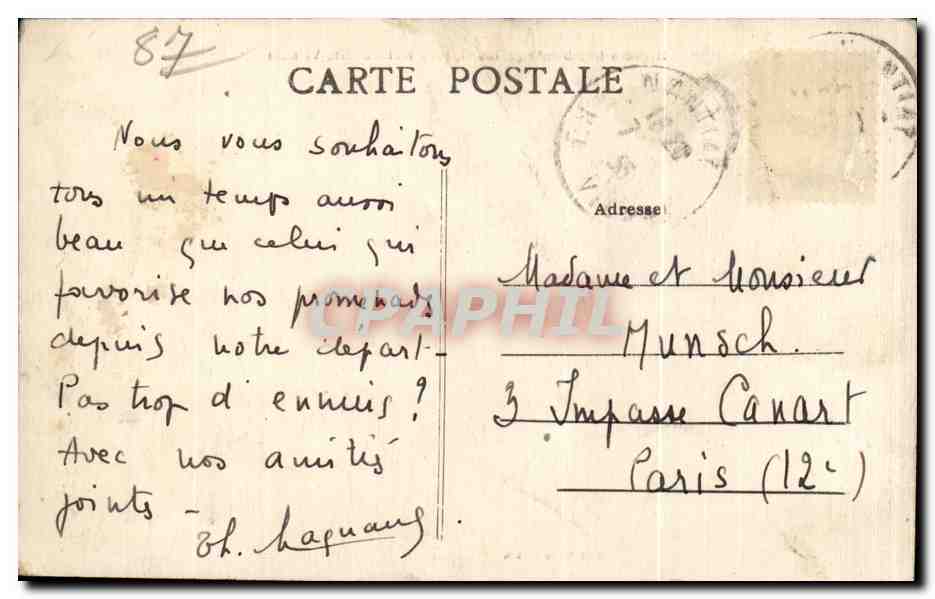 87
CARTE POSTALE
NANTIAT
NANTIAT
Nous vous souhaitons
tous un temps aussi
beau que celui qui
favorise nos promenades
depuis notre départ -
Pas trop d'ennuis ?
Avec nos amitiés
joints -
Th.
Adresse
Madame et Monsieur
Munsch.
3 Impasse Canart
Paris (12e)
CPAPHIL